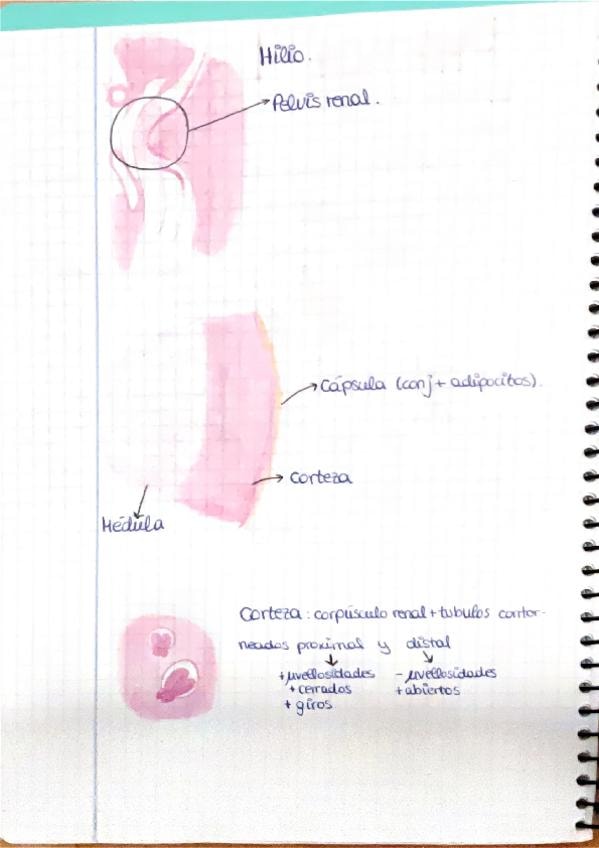 Hilio.
Pelvis renal.
Cápsula (conj + adipocitos).
Corteza
Médula
Corteza: corpúsculo renal + tubulos contor-
neados proximal y distal
+ μvellosidades - μvellosidades
+ cerrados + abiertos
+ giros